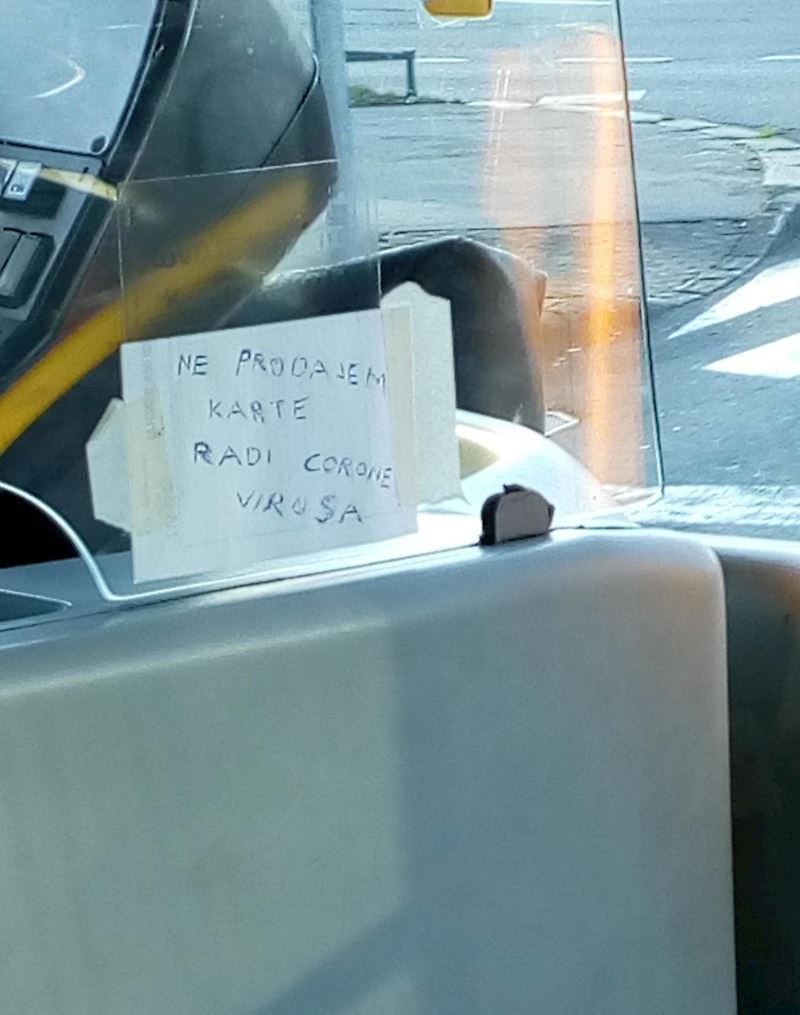 NE PRODAJEM
KARTE
RADI CORONE
VIRUSA